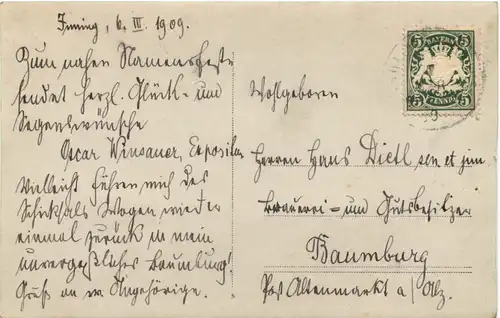 6. III. 1909.
Zum nahen Namensfeste
sendet herzl. Glück- und
Segenswünsche
Oscar Winsauer, Expositus
Vielleicht führen mich des
Schiksals Wogen wieder
einmal zurück in mein
unvergeßliches Baumburg!
Gruß an w. Angehörige.
BAYERN
5 5
PFENNIG
Wohlgeboren
Herren Hans Dietl sen. et jun.
Brauerei- und Gutsbesitzer
Baumburg
Post Altenmarkt a/Alz.